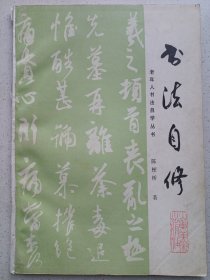 书法自修
老年人书法自学丛书
羲之顿首丧乱之极
先墓再离荼毒追
惟酷甚号慕摧绝
痛贯心肝痛当奈